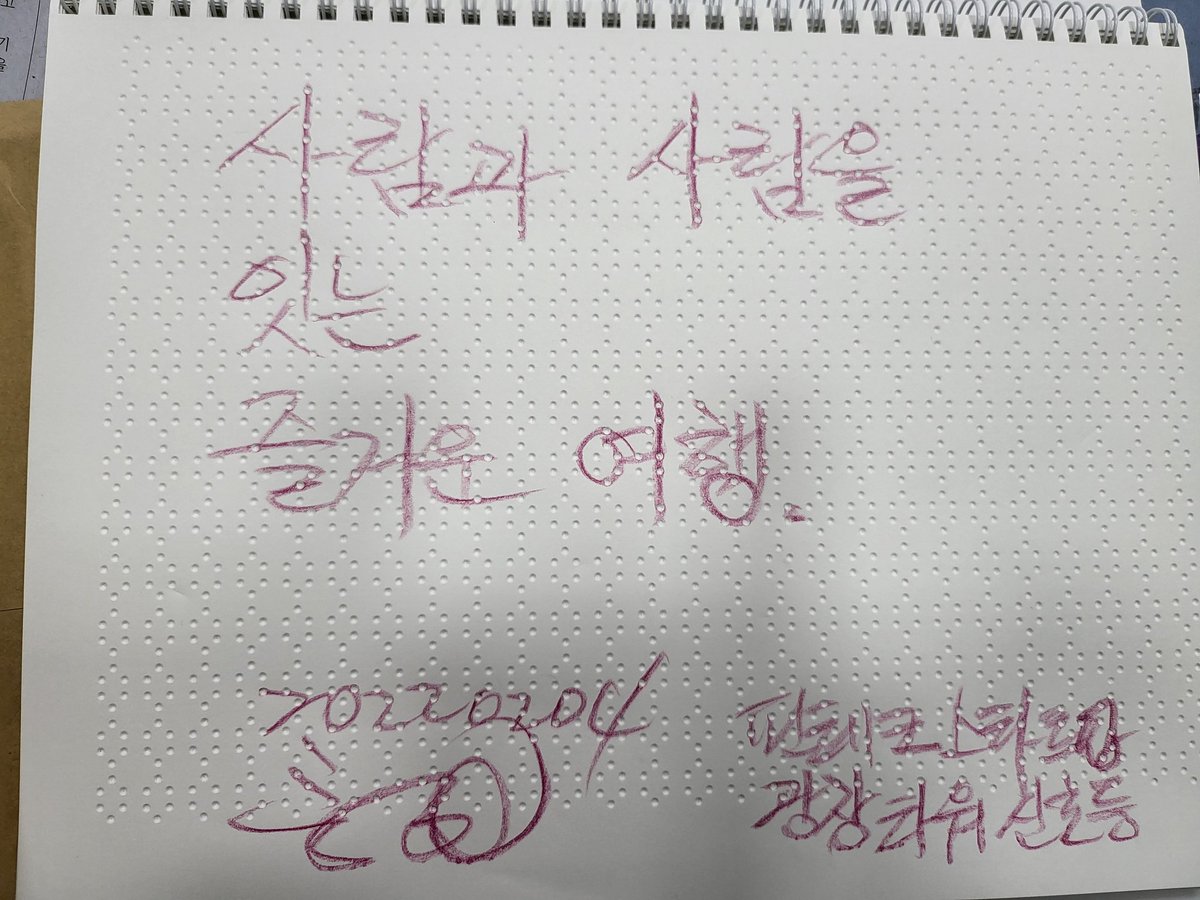 사람과 사람을
잇는
즐거운 여행.
20220204
광장타워 신호등